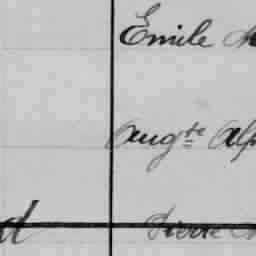 Emile
Aug^te Alp
Pierre